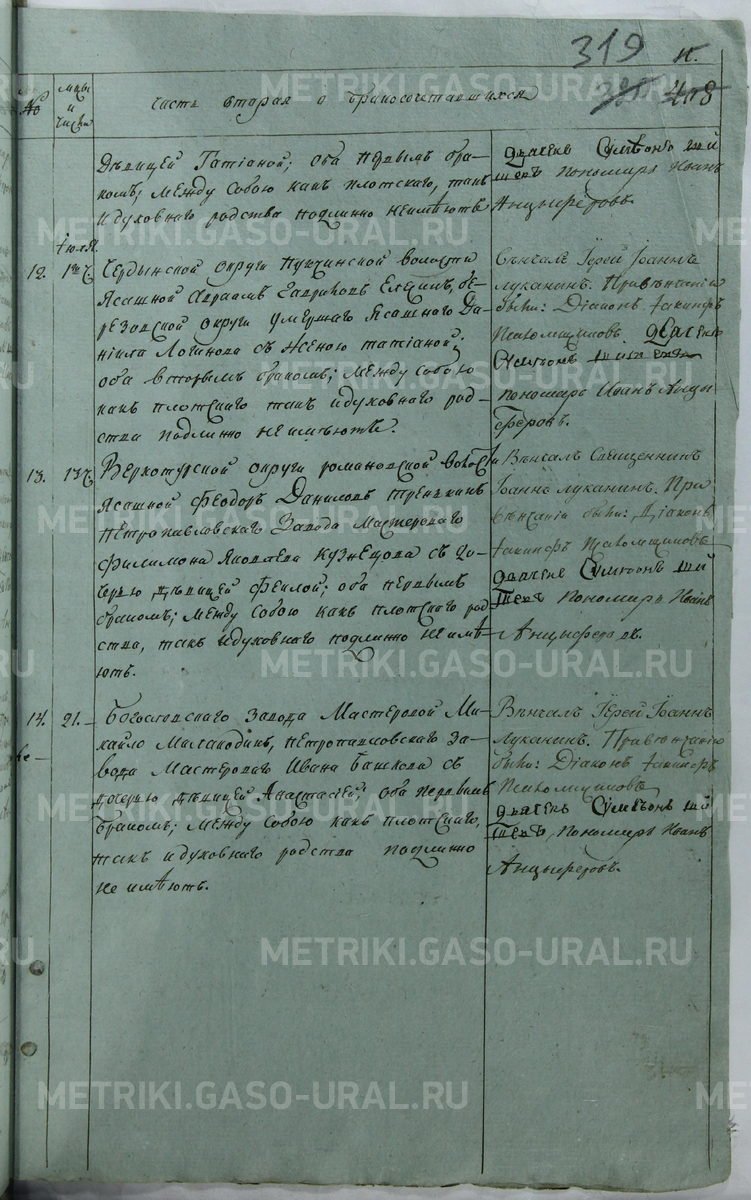 319
н.
408
№
мцы
и
числа
часть вторая о бракосочетавшихся
дѣвицей Татіаной; оба первымъ бра-
комъ; между собою какъ плотскаго, такъ
и духовнаго родства подлинно неимѣютъ
дьячекъ Сумеонъ
пономарь Иванъ
Анцыферовъ.
Іюля
12.
Чердынской округи волости
Ясашной Гавриловъ
округи умершаго Ясашнаго Да-
ніила Логинова съ женою татіаной;
оба вторымъ бракомъ; между собою
какъ плотскаго такъ идуховнаго род-
ства подлинно неимѣютъ.
Вѣнчалъ Іерей Іоаннъ
Луканинъ. Привѣнчаніи
были: Діаконъ Іакинфъ
Пахомщиковъ. дьячекъ
Сумеонъ
пономарь Иванъ Анцы
феровъ.
13.
Верхотурской округи романовской волости
Ясашной Феодоръ Даниловъ
Петропавловскаго Завода Мастероваго
Филимона Яковлева Кузнецова съ до-
черью дѣвицей Феклой; оба первымъ
бракомъ; между собою какъ плотскаго род
ства, такъ идуховнаго подлинно не имѣ-
ютъ.
Вѣнчалъ Священникъ
Іоаннъ Луканинъ. При
вѣнчаніи были: Діаконъ
Іакинфъ Пахомщиковъ
дьячекъ Сумеонъ
пономарь Иванъ
Анцыферовъ.
14.
21.
Богословскаго Завода Мастеровой Ми-
хайло Малаходкинъ, петропавловскаго За-
вода Мастероваго Ивана съ
дочерью дѣвицей Анастасіей; оба первымъ
бракомъ; между собою какъ плотскаго,
такъ идуховнаго родства подлинно
не имѣютъ.
Вѣнчалъ Іерей Іоаннъ
Луканинъ. Привѣнчаніи
были: Діаконъ Іакинфъ
Пахомщиковъ
дьячекъ Сумеонъ
пономарь Иванъ
Анцыферовъ.
METRIKI.GASO-URAL.RU